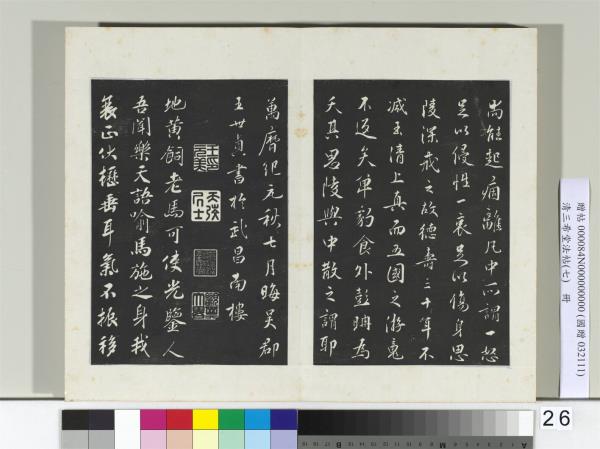 尚能起痼離凡中所謂一怒
足以侵性一哀足以傷身思
陵深戒之故德壽三十年不
减玉清上真而五國之游竟
不返矣單豹食外彭聃為
夭其君陵與中散之謂耶
萬曆紀元秋七月晦吳郡
王世貞書於武昌南樓
地黄飼老馬可使光鑒人
吾聞樂天語喻馬施之身我
衰正伏櫪垂耳氣不振移
贈帖 000084N000000000 (國贈 032111)
清三希堂法帖(七) 冊
26